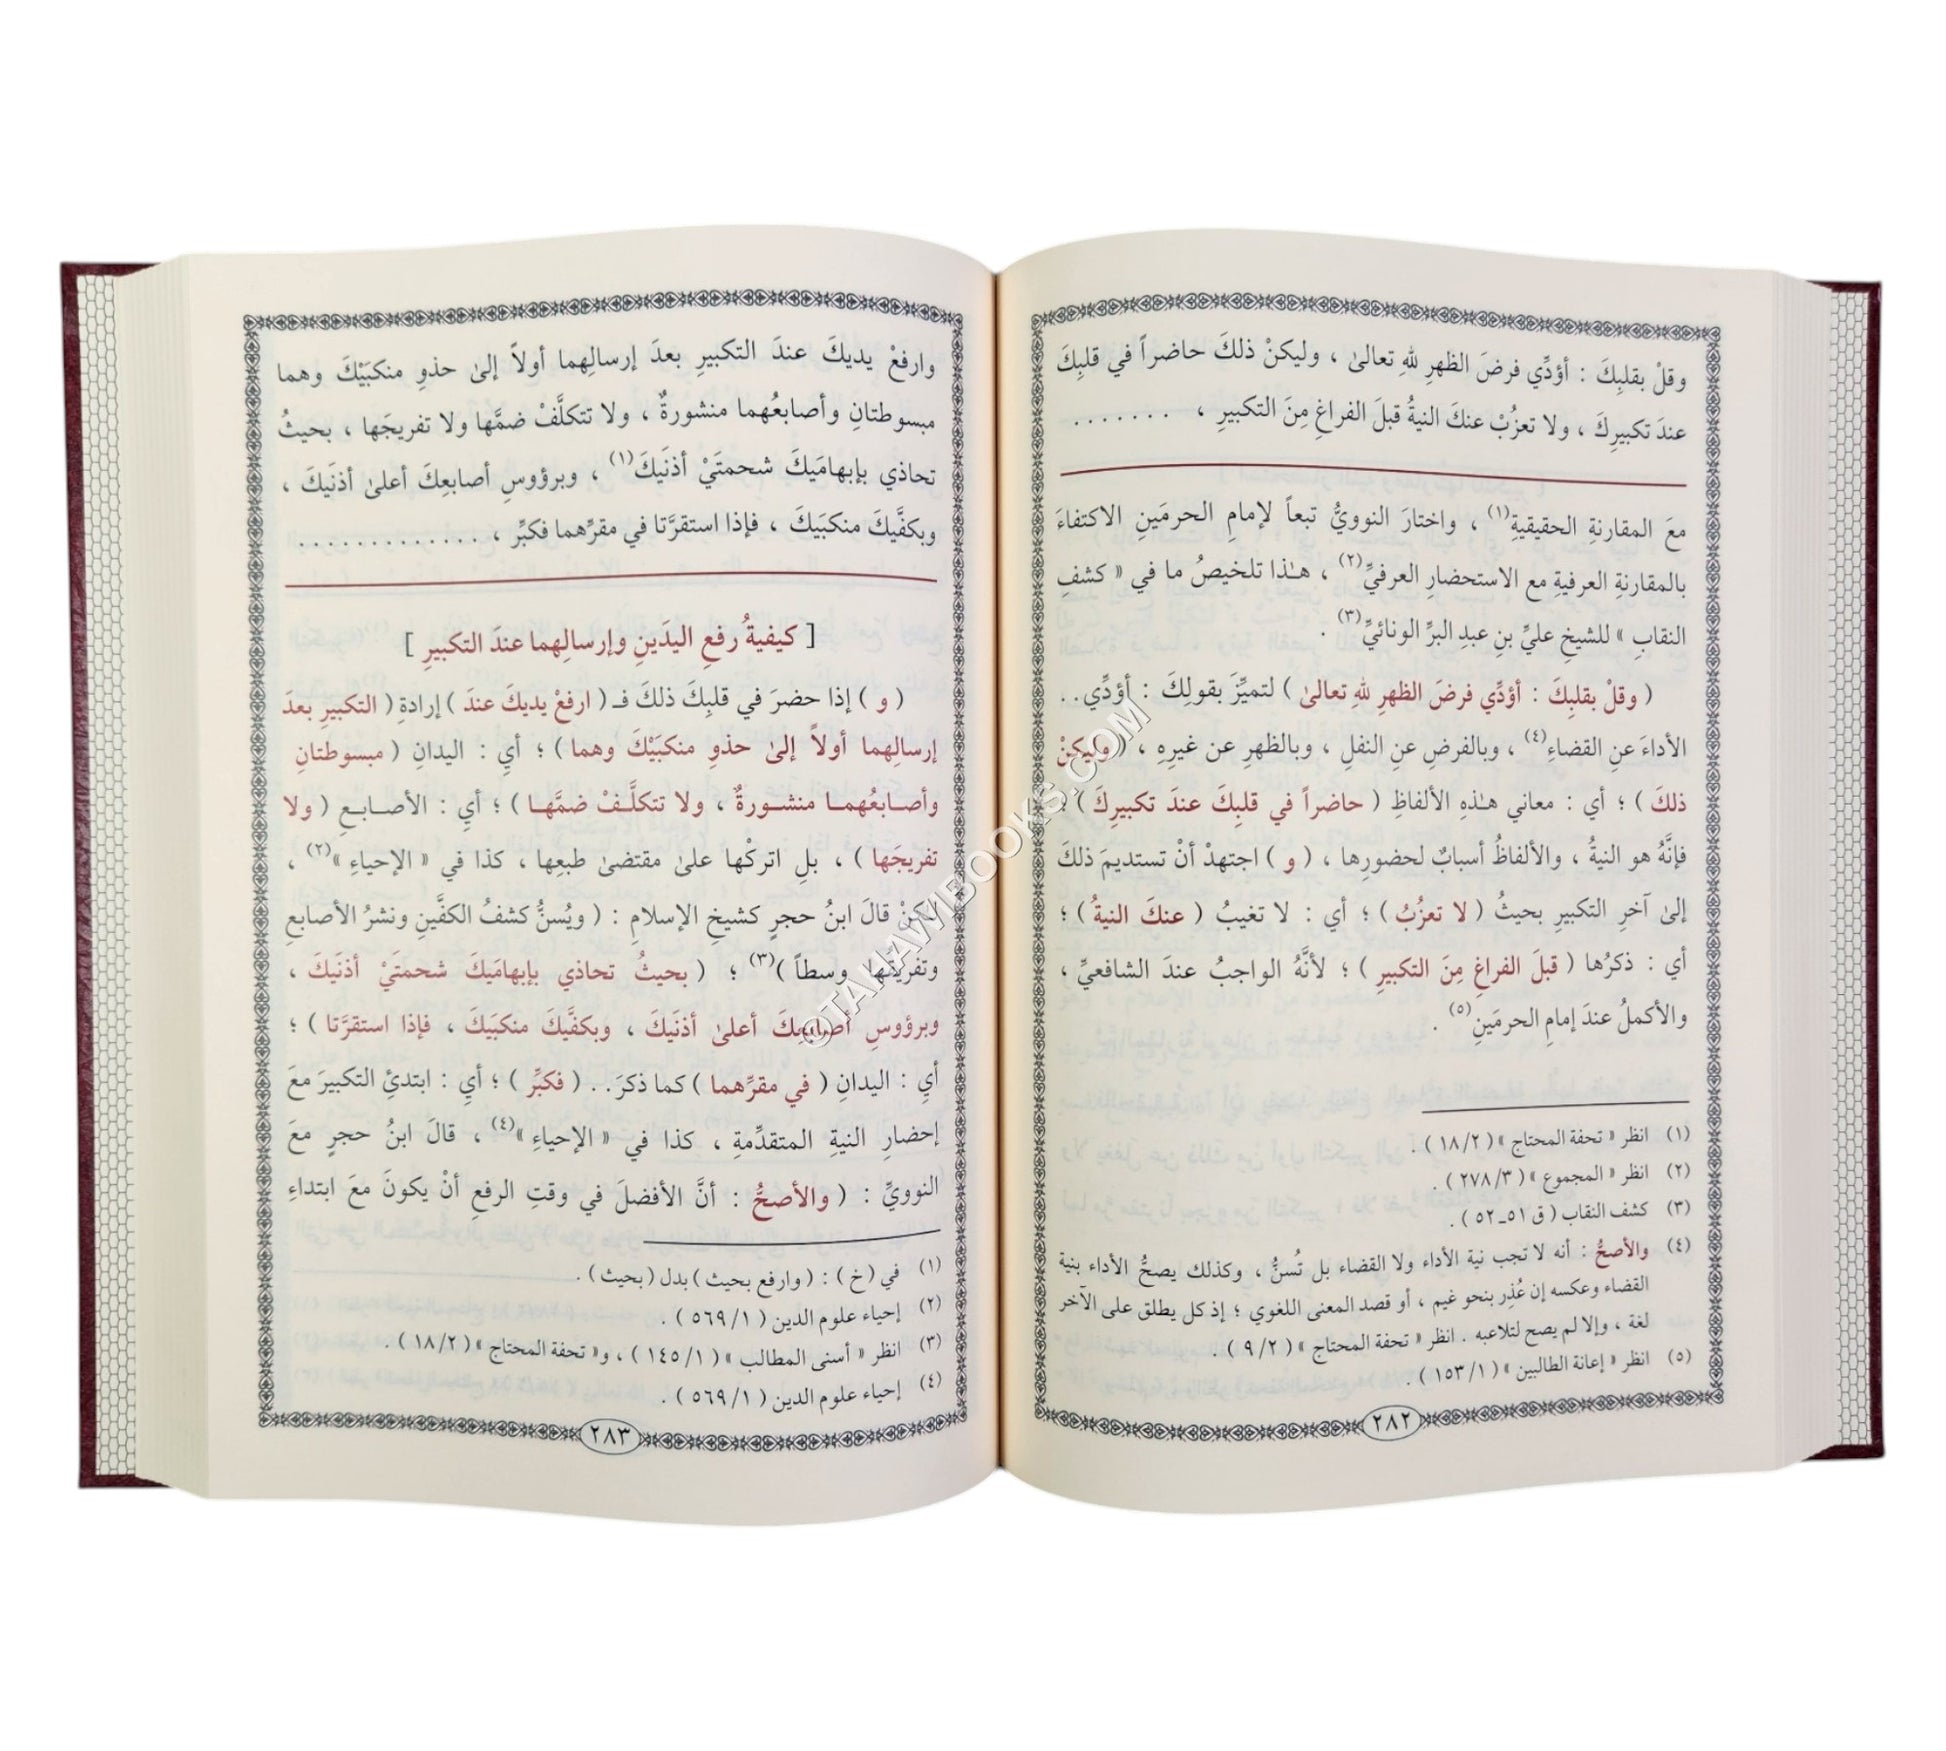 وقلْ بقلبِكَ : أؤدِّي فرضَ الظهرِ للهِ تعالىٰ ، وليكنْ ذلكَ حاضراً في قلبِكَ
عندَ تكبيرِكَ ، ولا تعزُبْ عنكَ النيةُ قبلَ الفراغِ مِنَ التكبيرِ ، . . . . . . .
معَ المقارنةِ الحقيقيةِ(١) ، واختارَ النوويُّ تبعاً لإمامِ الحرمَينِ الاكتفاءَ
بالمقارنةِ العرفيةِ مع الاستحضارِ العرفيِّ(٢) ، هـٰذا تلخيصُ ما في « كشفِ
النقابِ » للشيخِ عليِّ بنِ عبدِ البرِّ الونائيِّ(٣) .
( وقلْ بقلبِكَ : أؤدِّي فرضَ الظهرِ للهِ تعالىٰ ) لتميِّزَ بقولِكَ : أؤدِّي . .
الأداءَ عنِ القضاءِ(٤) ، وبالفرضِ عنِ النفلِ ، وبالظهرِ عن غيرِهِ ، ( وليكنْ
ذلكَ ) ؛ أي : معاني هـٰذهِ الألفاظِ ( حاضراً في قلبِكَ عندَ تكبيرِكَ ) ؛
فإنَّهُ هو النيةُ ، والألفاظُ أسبابٌ لحضورِها ، ( و ) اجتهدْ أنْ تستديمَ ذلكَ
إلىٰ آخرِ التكبيرِ بحيثُ ( لا تعزُبُ ) ؛ أي : لا تغيبُ ( عنكَ النيةُ ) ؛
أي : ذكرُها ( قبلَ الفراغِ مِنَ التكبيرِ ) ؛ لأنَّهُ الواجبُ عندَ الشافعيِّ ،
والأكملُ عندَ إمامِ الحرمَينِ(٥) .
(١) انظر « تحفة المحتاج » ( ١٨/٢ ) .
(٢) انظر « المجموع » ( ٢٧٨/٣ ) .
(٣) كشف النقاب ( ق ٥١ـ٥٢ ) .
(٤) والأصحُّ : أنه لا تجب نية الأداء ولا القضاء بل تُسنُّ ، وكذلك يصحُّ الأداء بنية
القضاء وعكسه إن عُذِر بنحو غيم ، أو قصد المعنى اللغوي ؛ إذ كل يطلق على الآخر
لغة ، وإلا لم يصح لتلاعبه . انظر « تحفة المحتاج » ( ٩/٢ ) .
(٥) انظر « إعانة الطالبين » ( ١٥٣/١ ) .
٢٨٢
وارفعْ يديكَ عندَ التكبيرِ بعدَ إرسالِهما أولاً إلىٰ حذوِ منكبَيْكَ وهما
مبسوطتانِ وأصابعُهما منشورةٌ ، ولا تتكلَّفْ ضمَّها ولا تفريجَها ، بحيثُ
تحاذي بإبهامَيكَ شحمتَيْ أذنَيكَ(١) ، وبرؤوسِ أصابعِكَ أعلىٰ أذنَيكَ ،
وبكفَّيكَ منكبَيكَ ، فإذا استقرَّتا في مقرِّهما فكبِّر ، . . . . . . . . . . . . .
[ كيفيةُ رفعِ اليدَينِ وإرسالِهما عندَ التكبيرِ ]
( و ) إذا حضرَ في قلبِكَ ذلكَ فـ ( ارفعْ يديكَ عندَ ) إرادةِ ( التكبيرِ بعدَ
إرسالِهما أولاً إلىٰ حذوِ منكبَيْكَ وهما ) ؛ أيِ : اليدانِ ( مبسوطتانِ
وأصـابعُهمـا منشـورةٌ ، ولا تتكلَّـفْ ضمَّهـا ) ؛ أيِ : الأصـابـعِ ( ولا
تفريجَها ) ، بلِ اتركْها علىٰ مقتضىٰ طبعِها ، كذا في « الإحياءِ »(٢) ،
لكنْ قالَ ابنُ حجرٍ كشيخِ الإسلامِ : ( ويُسنُّ كشفُ الكفَّينِ ونشرُ الأصابعِ
وتفريقُها وسطاً )(٣) ؛ ( بحيثُ تحاذي بإبهامَيكَ شحمتَيْ أذنَيكَ ،
وبرؤوسِ أصابعِكَ أعلىٰ أذنَيكَ ، وبكفَّيكَ منكبَيكَ ، فإذا استقرَّتا ) ؛
أيِ : اليدانِ ( في مقرِّهما ) كما ذكرَ . . ( فكبِّر ) ؛ أيِ : ابتدئِ التكبيرَ معَ
إحضارِ النيةِ المتقدِّمةِ ، كذا في « الإحياءِ »(٤) ، قالَ ابنُ حجرٍ معَ
النوويِّ : ( والأصحُّ : أنَّ الأفضلَ في وقتِ الرفعِ أنْ يكونَ معَ ابتداءِ
(١) في (خ) : ( وارفع بحيث ) بدل ( بحيث ) .
(٢) إحياء علوم الدين ( ٥٦٩/١ ) .
(٣) انظر « أسنى المطالب » ( ١٤٥/١ ) ، و« تحفة المحتاج » ( ١٨/٢ ) .
(٤) إحياء علوم الدين ( ٥٦٩/١ ) .
٢٨٣
©TAKLAWIBOOKS.COM